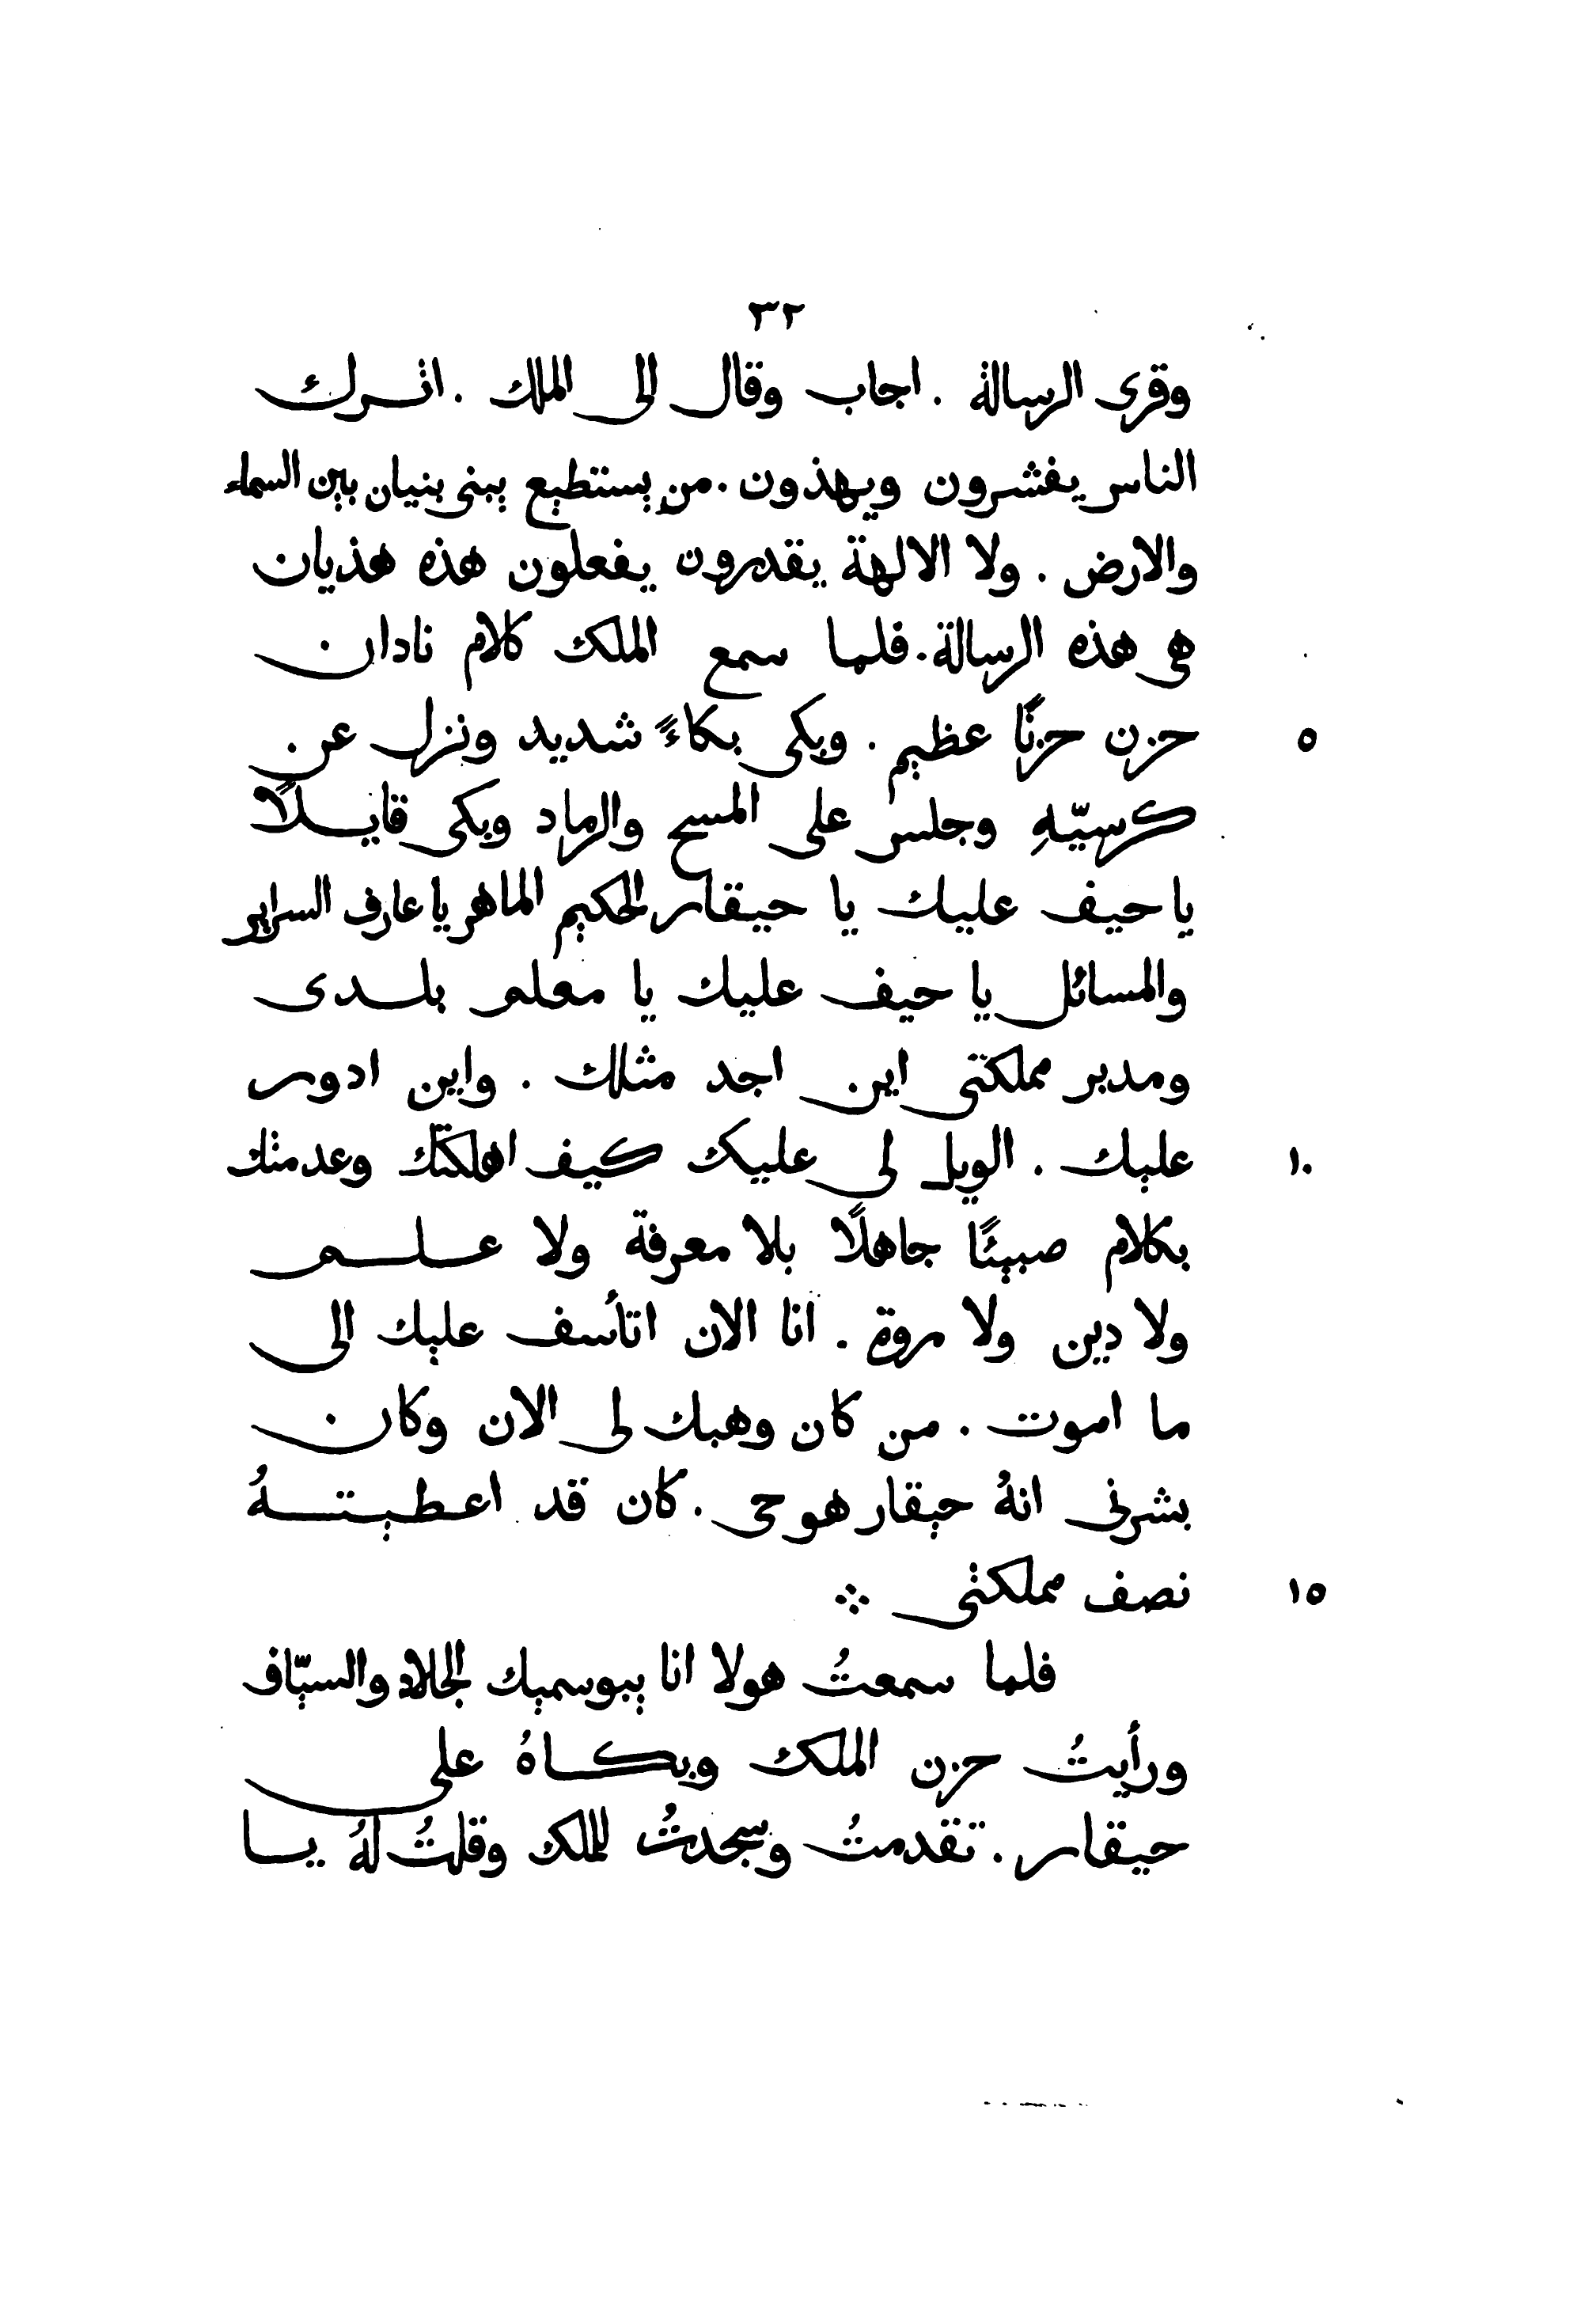 ٣٢
وقرى الرسالة . اجاب وقال الى الملك . اتـرك
الناس يفشرون ويهذون . من يستطيع يبنى بنيان بين السماء
والارض . ولا الالهة يقدرون يفعلون هذه هذيان
هى هذه الرسالة . فلما سمع الملك كلام نادان
٥ حزن حزنًا عظيم . وبكى بكاءً شديد ونزل عن
كرسيّهِ وجلس على المسح والرماد وبكى قايـلًا
يا حيف عليك يا حيقار الحكيم الماهر يا عارف السراير
والمسائل يا حيف عليك يا معلم بلـدى
ومدبر مملكتى اين اجد مثلك . واين ادور
١٠ عليك . الويل لى عليك كيف اهلكتك وعدمتك
بكلام صبيئًا جاهلًا بلا معرفة ولا علـم
ولا دين ولا مروة . انا الان اتأسف عليك الى
ما اموت . من كان وهبك لى الان وكان
بشرنى انهُ حيقار هو حى . كان قد اعطيتـهُ
١٥ نصف مملكتى ܀
فلما سمعتُ هولا انا يبوسميك الجلاد والسيّاف
ورأيتُ حزن الملك وبكـاهُ على
حيقار . تقدمتُ وسجدتُ للملك وقلتُ لهُ يـا